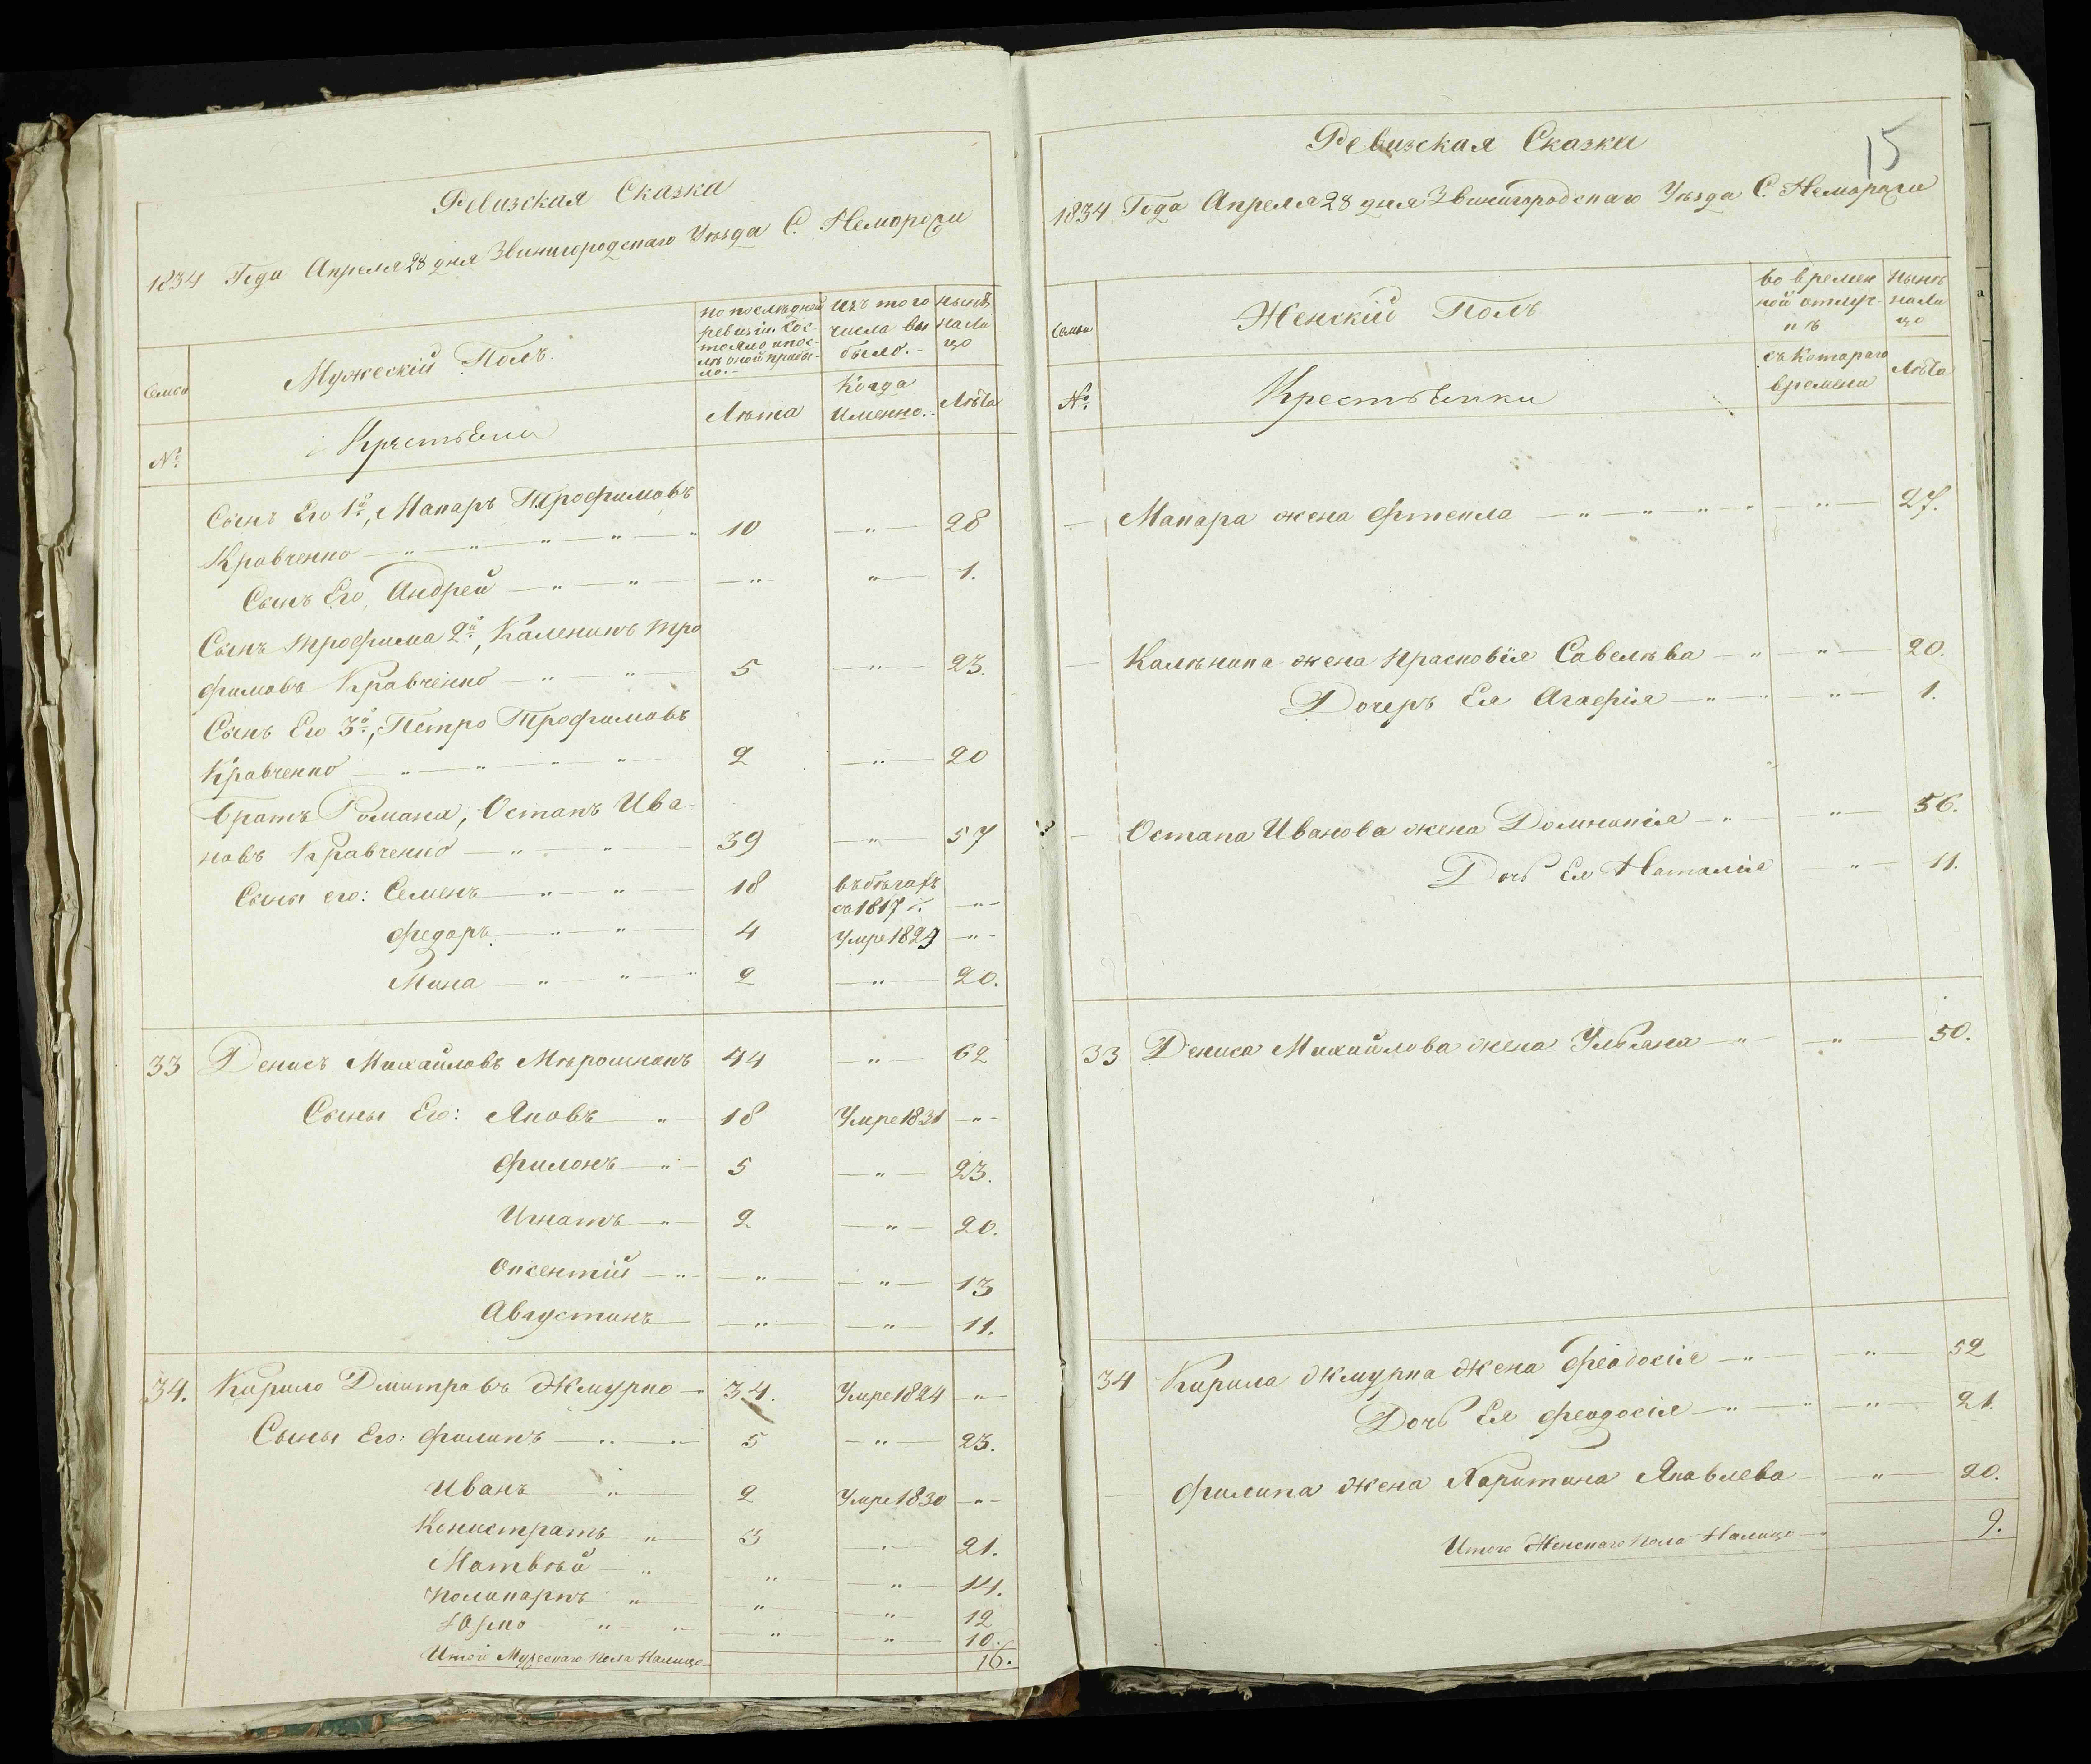 Ревизская Сказка
1834 Года Апреля 28 дня Звинигородскаго Уѣзда С. Немороги
Семьи
Мужескій Полъ.
по послѣдней
ревизіи сос-
тояло и пос-
лѣ оной прибы-
ло.-
Изъ того
числа вы
было.-
нынѣ
нали
цо
№
Крестьяни
Лѣта
Когда
Именно.
Лѣта
Сынъ Его 1й, Макаръ Трофимовъ
Кравченко 10 28
Сынъ Его, Андрей 1.
Сынъ Трофима 2й, Каленикъ Тро
фимовъ Кравченко 5 23.
Сынъ Его 3й, Петро Трофимовъ
Кравченко 2 20
Братъ Романа, Остапъ Ива
новъ Кравченко 39 57
Сыны его: Семенъ 18 въ бѣгахъ
съ 1817
Федоръ 4 Умре 1829
Мина 2 20.
33 Денисъ Михайловъ Мѣрошникъ 44 62
Сыны Его: Яковъ 18 Умре 1831
Филонъ 5 23.
Игнатъ 2 20.
Оксентій 13
Августинъ 11.
34. Кирило Дмитровъ Жмурко 34. Умре 1824
Сыны Его: Филипъ 5 23.
Иванъ 2 Умре 1830
Кенистратъ 3 21.
Матвѣй 14.
Поликарпъ 12
10.
Итого Мужескаго пола Налицо 16.
15
Ревизская Сказка
1834 Года Апреля 28 дня Звинигородскаго Уѣзда С. Немороги
Семьи
Женскій Полъ
во времен
ной отлуч-
кѣ
нынѣ
нали
цо
№
Крестьянки
съ котораго
времени
Лѣта
Макара жена Фтекла 27.
Калѣника жена Прасковія Савелѣва 20.
Дочеръ Ея Агафія 1.
Остапа Иванова жена Домникія 56.
Дочь Ея Наталія 11.
33 Дениса Михайлова жена Ульяна 50.
34 Кирила Жмурка Жена Феодосія 52
Дочь Ея Феодосія 21.
Филипа Жена Харитина Яковлева 20.
Итого Женскаго пола Налицо 9.